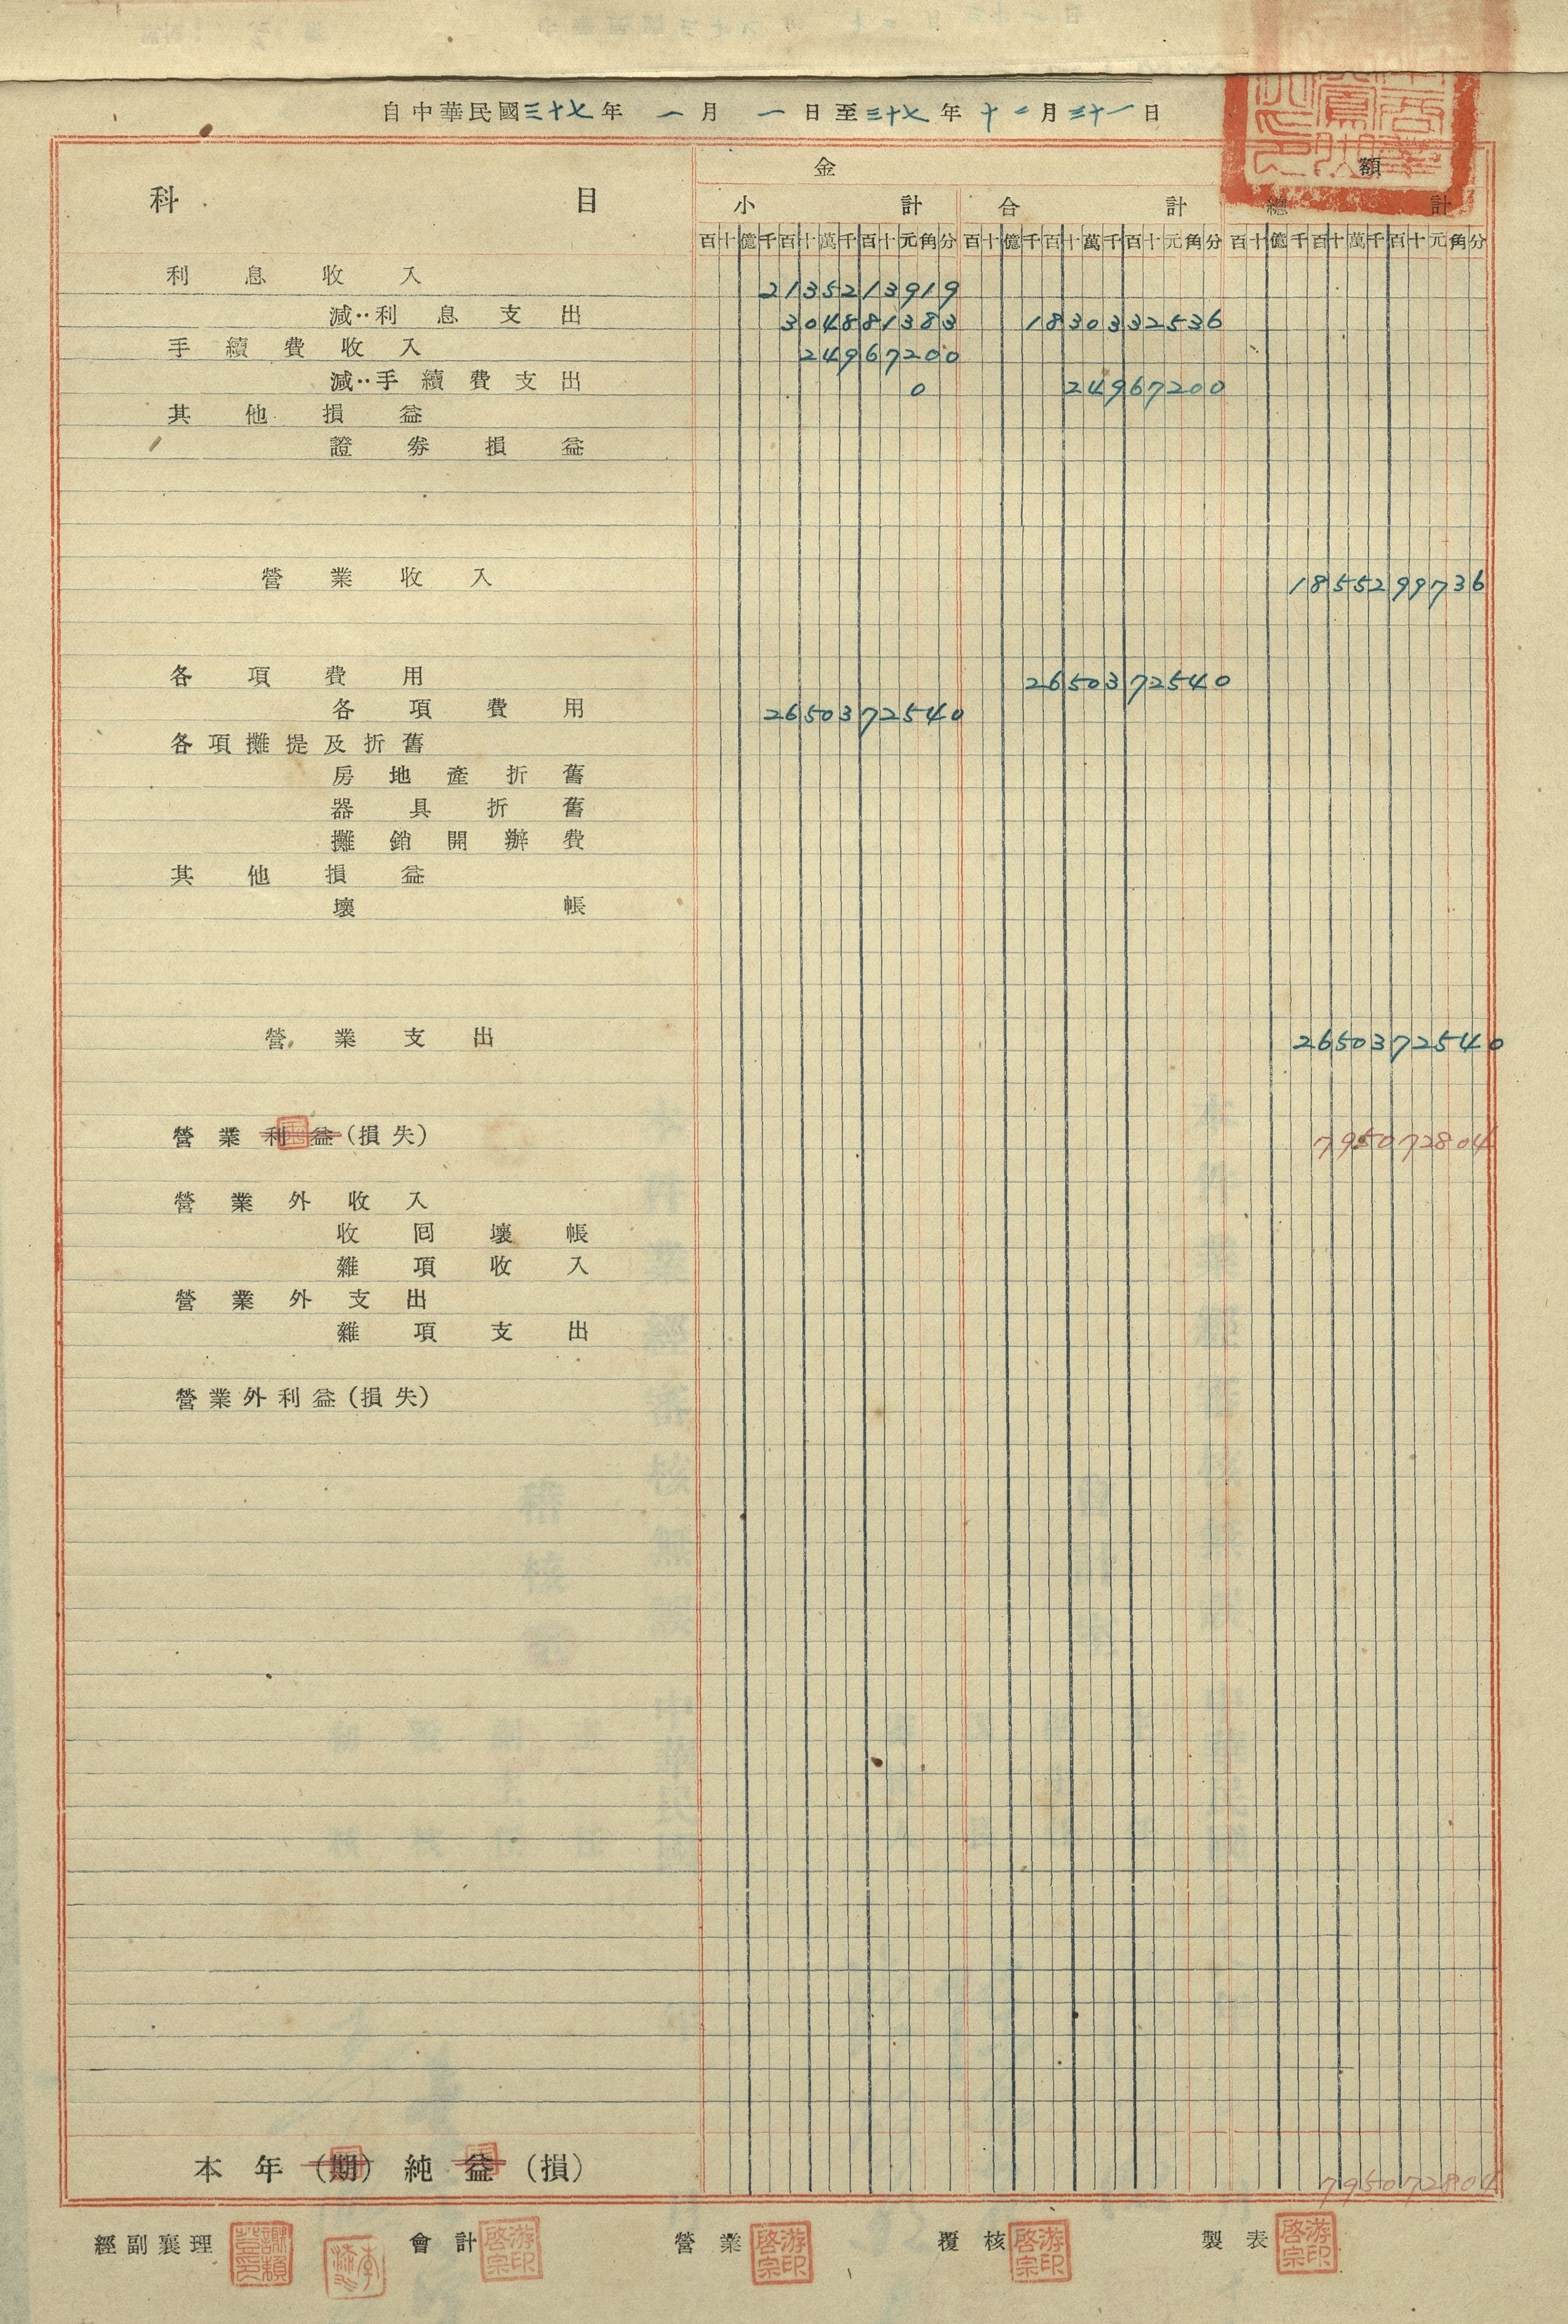 自中華民國三十七年 一月 一日至三十七年 十二月三十一日
科目 金額
小計 合計 總計
百十億千百十萬千百十元角分 百十億千百十萬千百十元角分 百十億千百十萬千百十元角分
利息收入 2135213919
減：利息支出 3048881383 18303332536
手續費收入 24967200
減：手續費支出 0 24967200
其他損益
證券損益
營業收入 18552999736
各項費用 2650372540
各項費用 2650372540
各項攤提及折舊
房地產折舊
器具折舊
攤銷開辦費
其他損益
壞帳
營業支出 2650372540
營業利益(損失) 795072804
營業外收入
收回壞帳
雜項收入
營業外支出
雜項支出
營業外利益(損失)
本年(期)純益(損) 795072804
經副襄理 會計 游啓宗印 營業 游啓宗印 覆核 游啓宗印 製表 游啓宗印